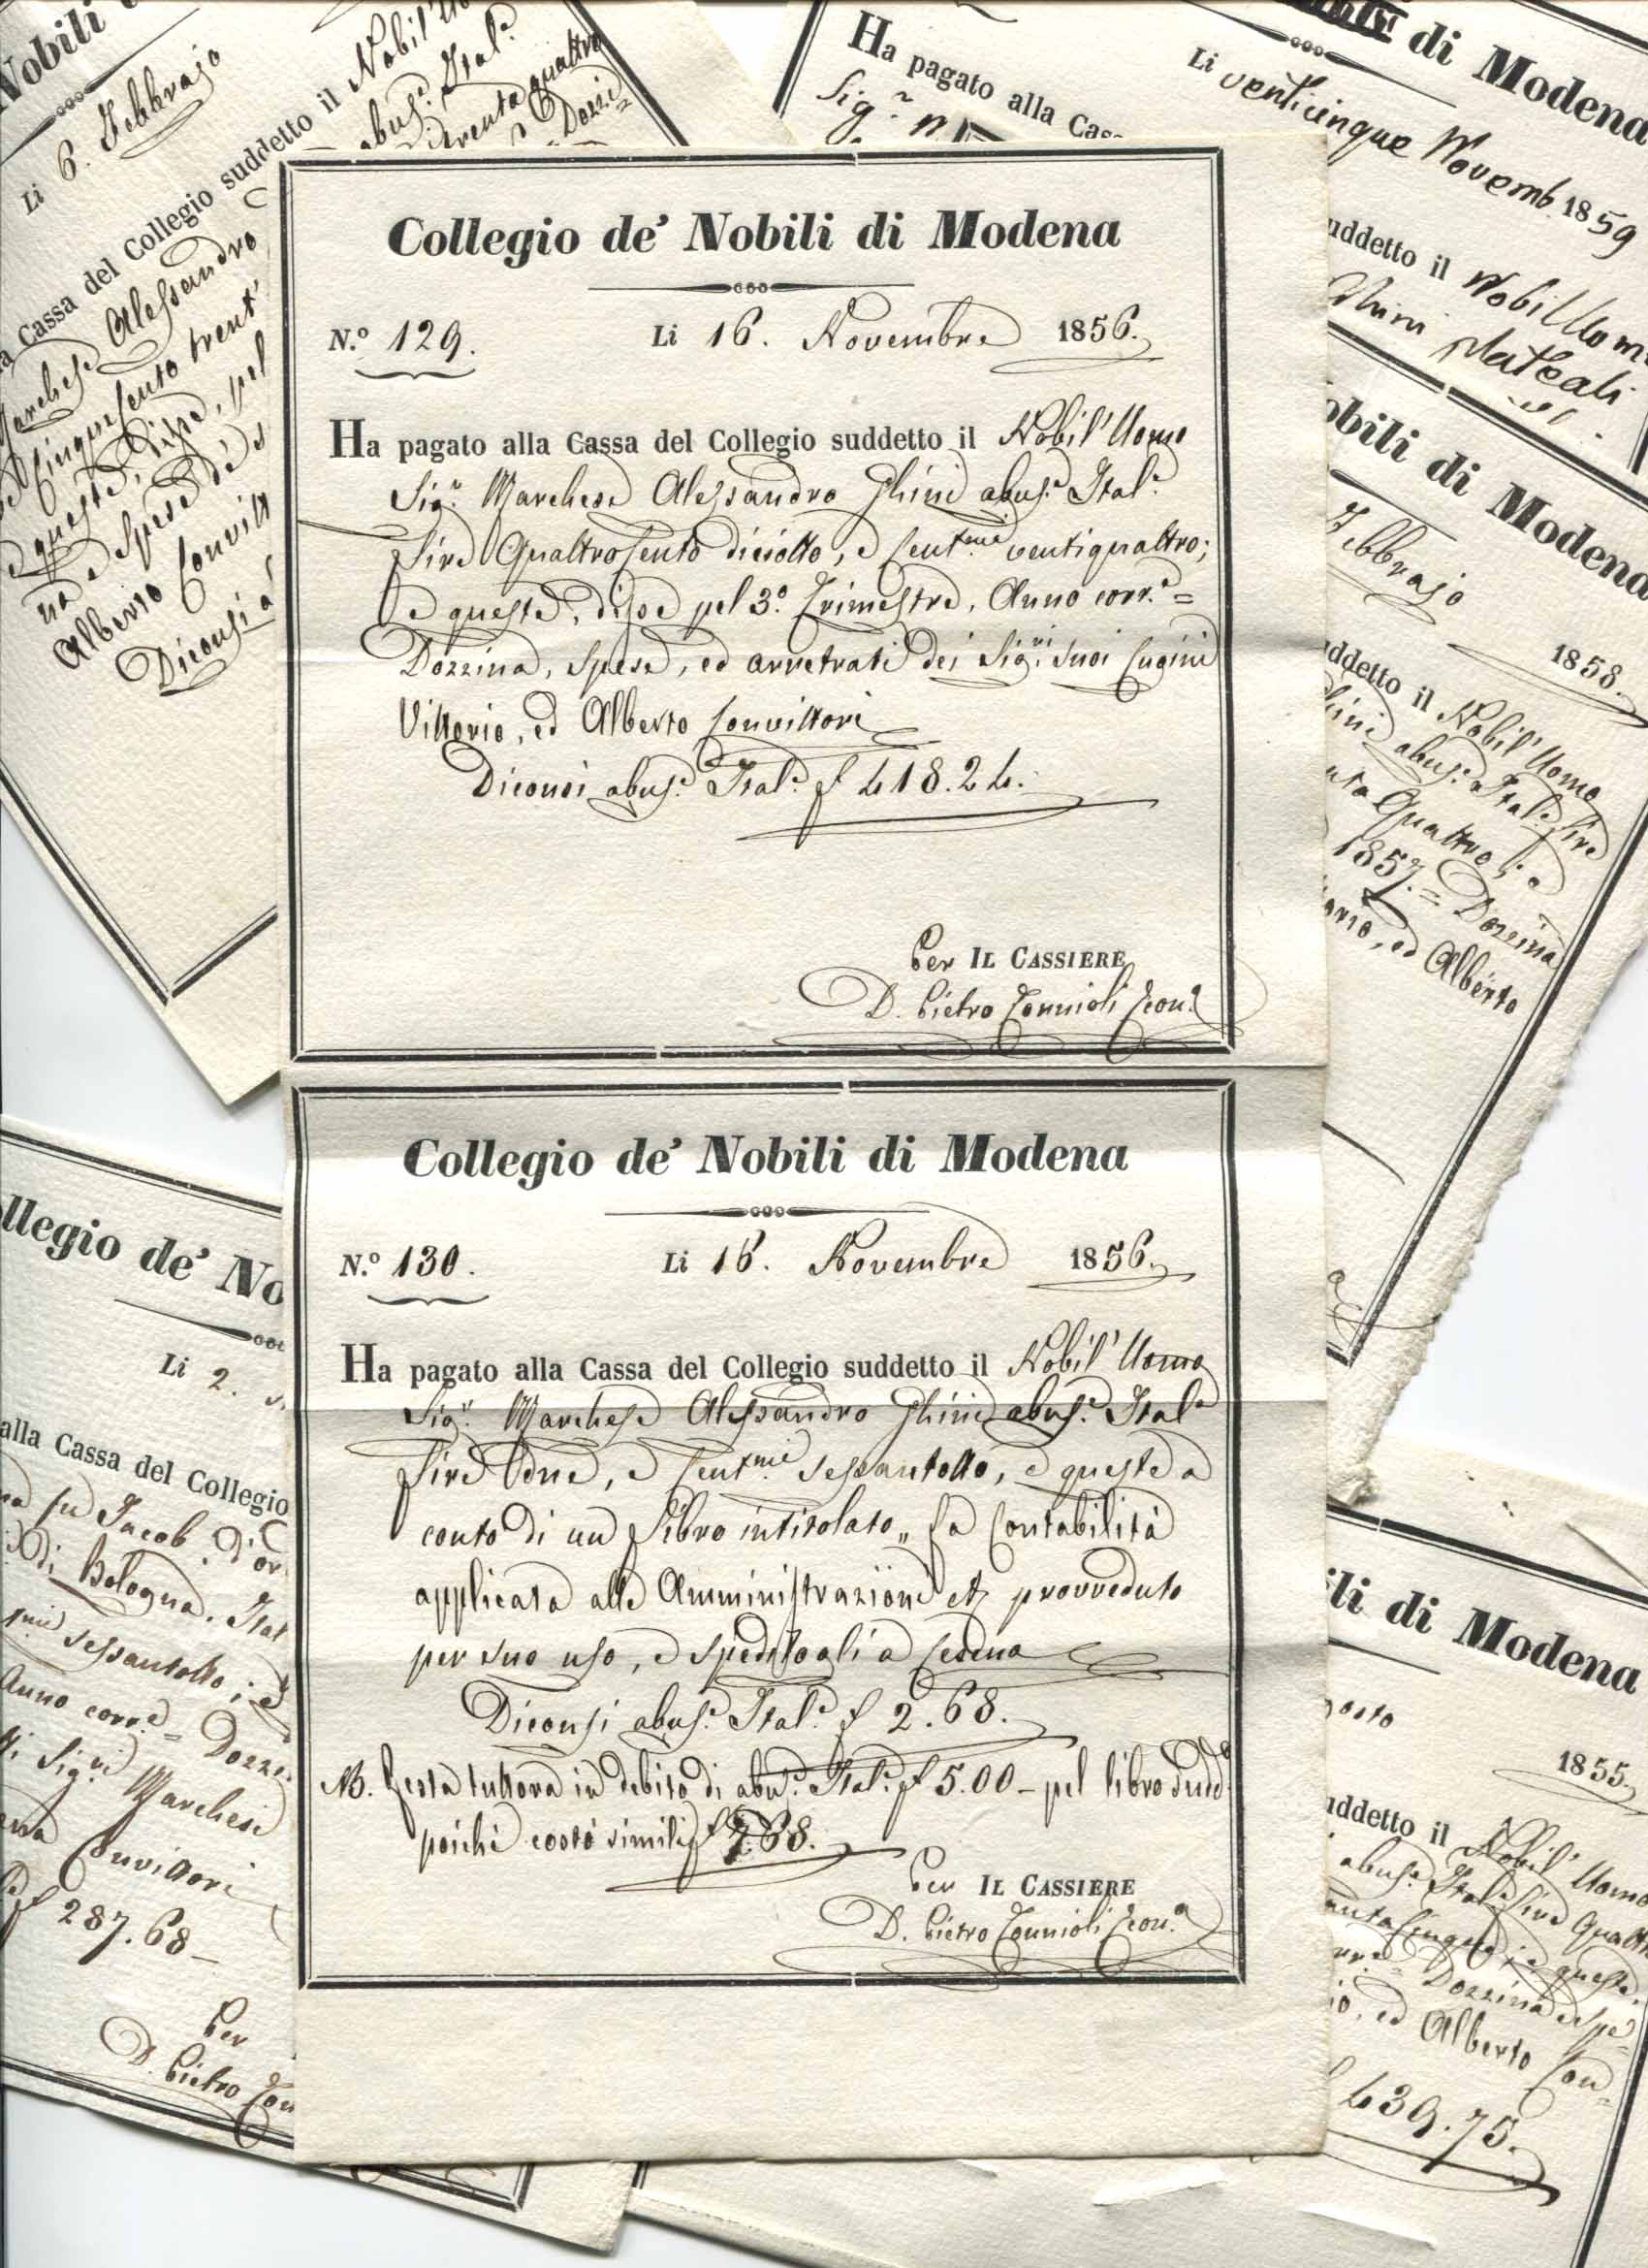 Nobili
Li 6. Febbrajo
Cassa del Collegio suddetto il Nobil'
abus.e Ital.e
trenta quattro
Dozzi=
Marchese Alessandro
Cinquecento trent'
queste, disse, pel
na e spese de' s
Alberto Convitt
Diconsi a
di Modena
Li venticinque Novemb. 1859
Ha pagato alla Cas
Sig.r
uddetto il Nobil Uom
Ghini
Collegio de' Nobili di Modena
N.º 129. Li 16. Novembre 1856.
Ha pagato alla Cassa del Collegio suddetto il Nobil' Uomo
Sig.r Marchese Alessandro Ghini abus.e Ital.e
Lire Quattrocento diciotto, e Cent.mi ventiquattro;
e queste, disse pel 3.º Trimestre, Anno corr.e =
Dozzina, spese, ed arretrati dei Sig.ri suoi Cugini
Vittorio, ed Alberto Convittori
Diconsi abus.e Ital.e £ 418.24.
Per IL CASSIERE
D. Pietro Tonnioli Econ.o
Collegio de' Nobili di Modena
N.º 130. Li 16. Novembre 1856.
Ha pagato alla Cassa del Collegio suddetto il Nobil' Uomo
Sig.r Marchese Alessandro Ghini abus.e Ital.e
Lire due, e Cent.mi sessantotto, e queste a
conto di un Libro intitolato „ La Contabilità
applicata alle Amministrazioni etz provveduto
per suo uso, e speditogli a Cesena
Diconsi abus.e Ital.e £ 2.68.
NB. Resta tuttora in debito di abus.e Ital.e £ 5.00 - pel libro sudd.o
poichè costò simili £ 7.68.
Per IL CASSIERE
D. Pietro Tonnioli Econ.o
obili di Modena
Febbrajo 1858.
uddetto il Nobil' Uomo
Ghini abus.e Ital.e Lire
nta Quattro; e
1857. = Dozzina
torio, ed Alberto
llegio de' No
Li 2.
alla Cassa del Collegio
di Bologna. Ital
sessantotto; e
Anno corr.e = Dozzi
Sig.ri Marchesi
Convittori
£ 287.68 –
Per
D. Pietro Ton
ili di Modena
gosto 1855.
uddetto il Nobil' Uomo
abus.e Ital.e Lire Quattr
anta Cinque; e queste,
Dozzina e spe=
io, ed Alberto Con=
£ 439.75.